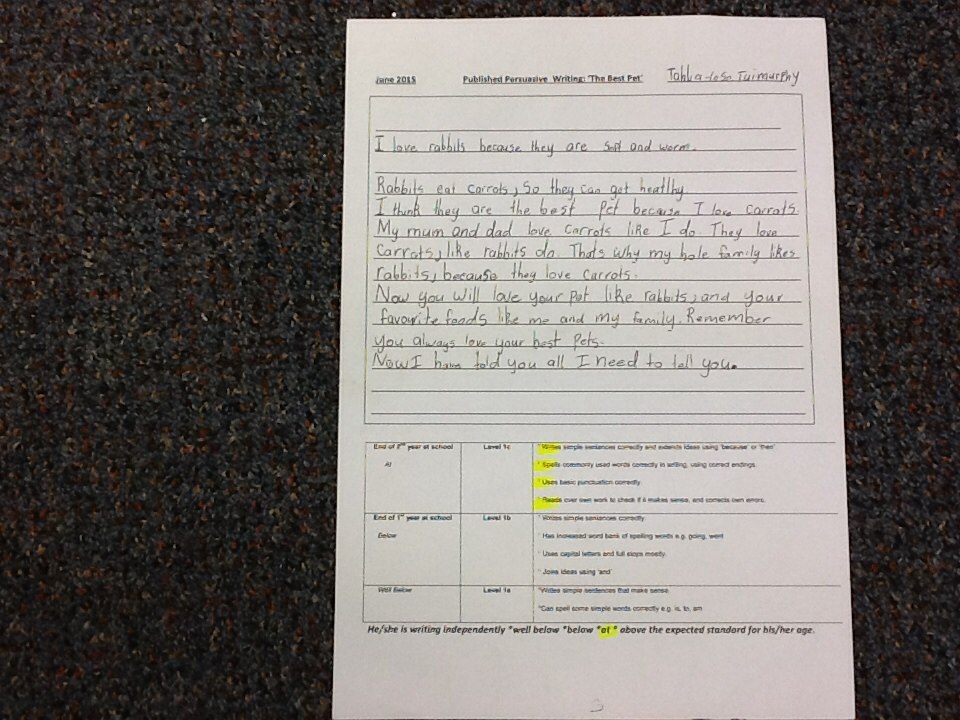 June 2015 Published Persuasive Writing: 'The Best Pet'
I love rabbits because they are soft and worm.
Rabbits eat carrots, So they can get heatlhy.
I think they are the best pet because I love carrots.
My mum and dad love carrots like I do. They love
carrots, like rabbits do. Thats why my hole family likes
rabbits, because they love carrots.
Now you will love your pet like rabbits, and your
favourite foods like me and my family. Remember
you always love your best pets.
Now I have told you all I need to tell you.
End of 2nd year at school Level 1c * Writes simple sentences correctly and extends ideas using 'because' or 'then'
At * Spells commonly used words correctly in writing, using correct endings.
* Uses basic punctuation correctly.
* Reads over own work to check if it makes sense, and corrects own errors.
End of 1st year at school Level 1b * Writes simple sentences correctly.
Below * Has increased word bank of spelling words e.g. going, went
* Uses capital letters and full stops mostly.
* Joins ideas using 'and'
Well Below Level 1a *Writes simple sentences that make sense.
*Can spell some simple words correctly e.g. is, to, am
He/she is writing independently *well below *below *at * above the expected standard for his/her age.